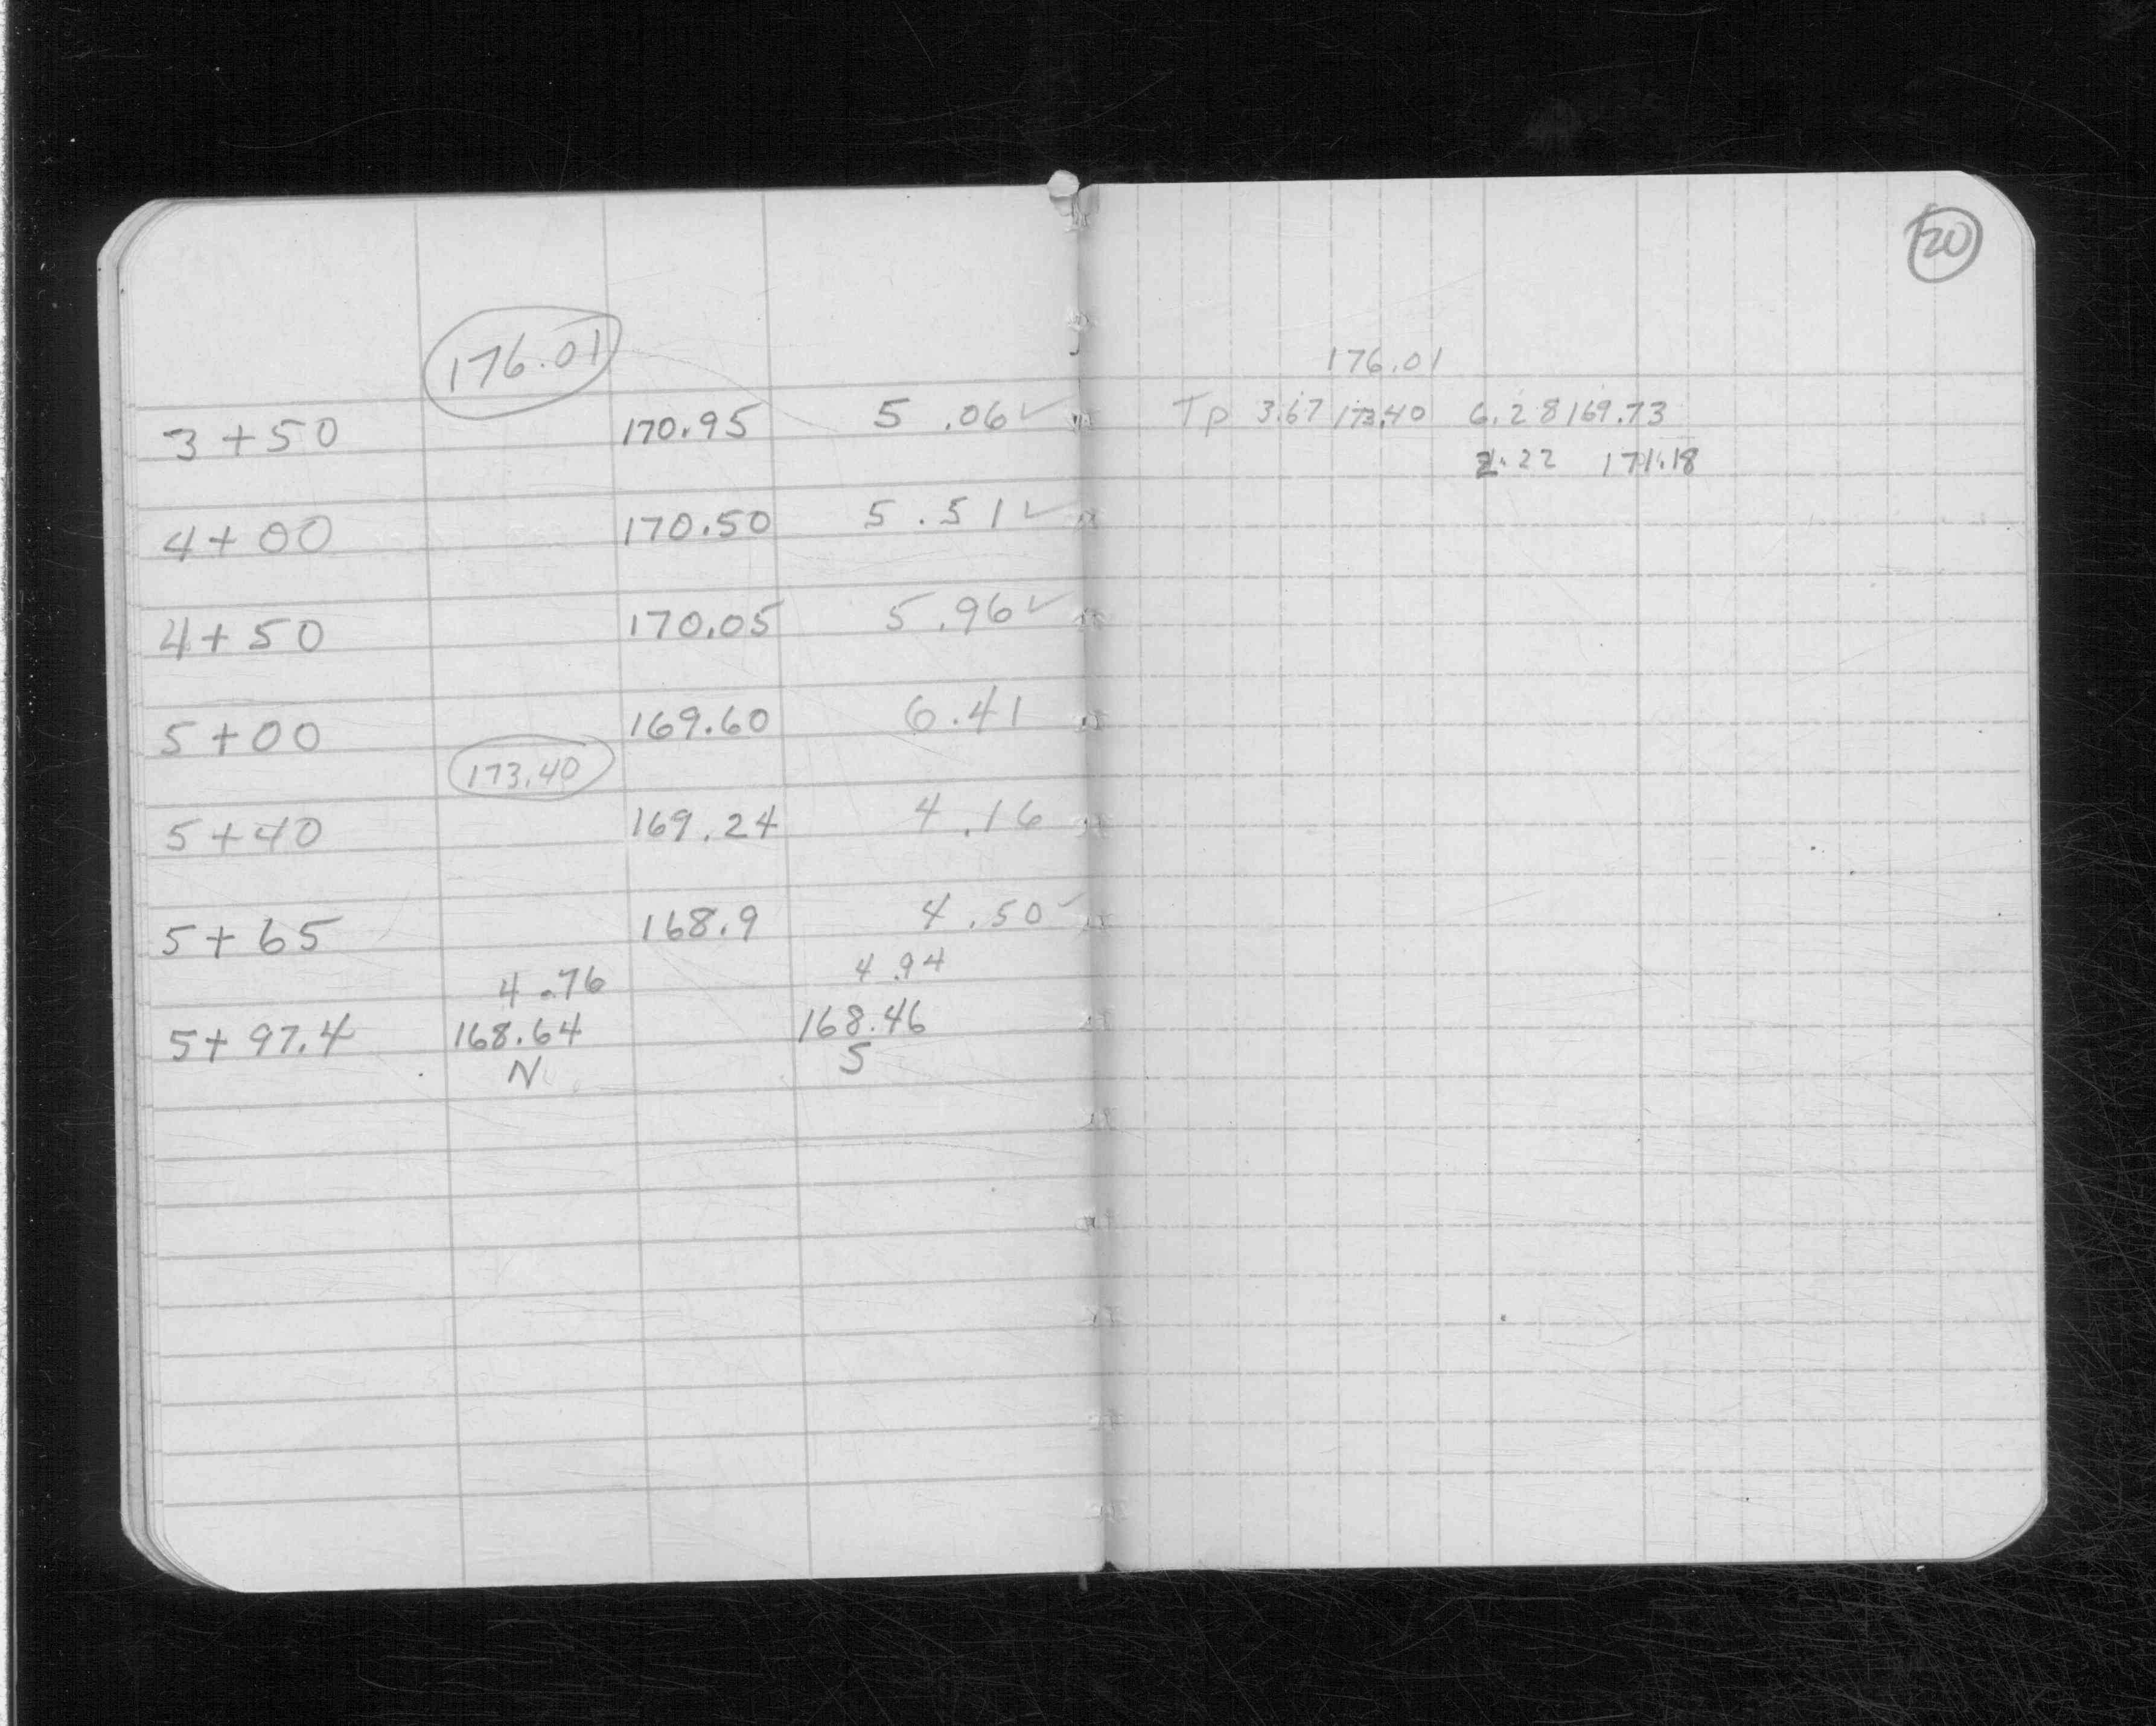 176.01
3+50 170.95 5.06 ✓
4+00 170.50 5.51 ✓
4+50 170.05 5.96 ✓
5+00 169.60 6.41
173.40
5+40 169.24 4.16
5+65 168.9 4.50 ✓
4.76 4.94
5+97.4 168.64 168.46
N S
20
176.01
Tp 3.67 173.40 6.28 169.73
2.22 171.18